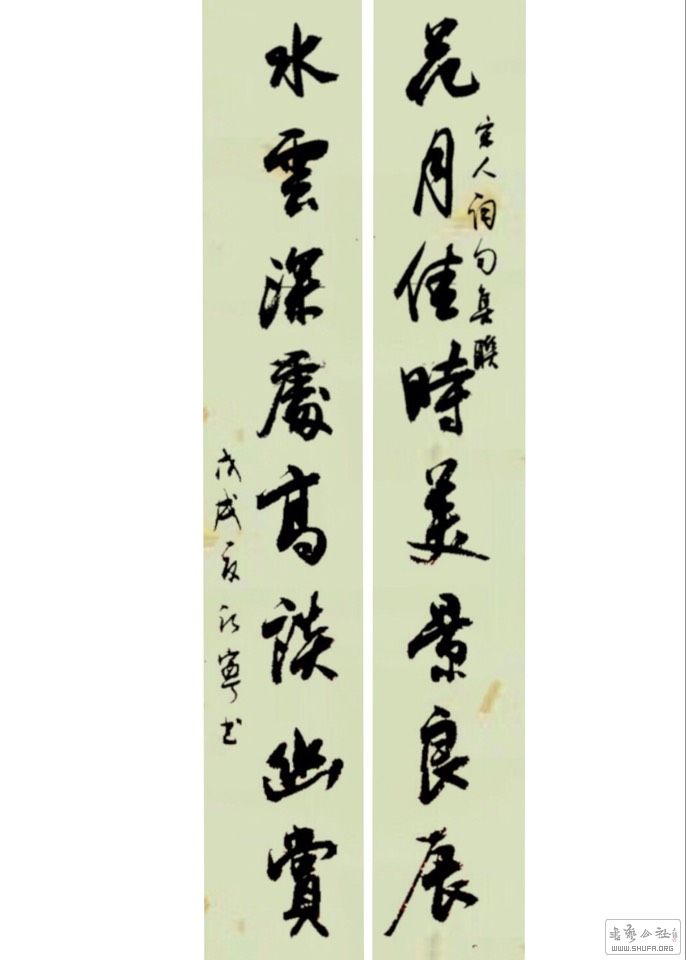 花月佳時美景良展
宋人词句集联
水雲深處高談幽賞
戊戌夏江寧书
书艺公社
WWW.SHUFA.ORG